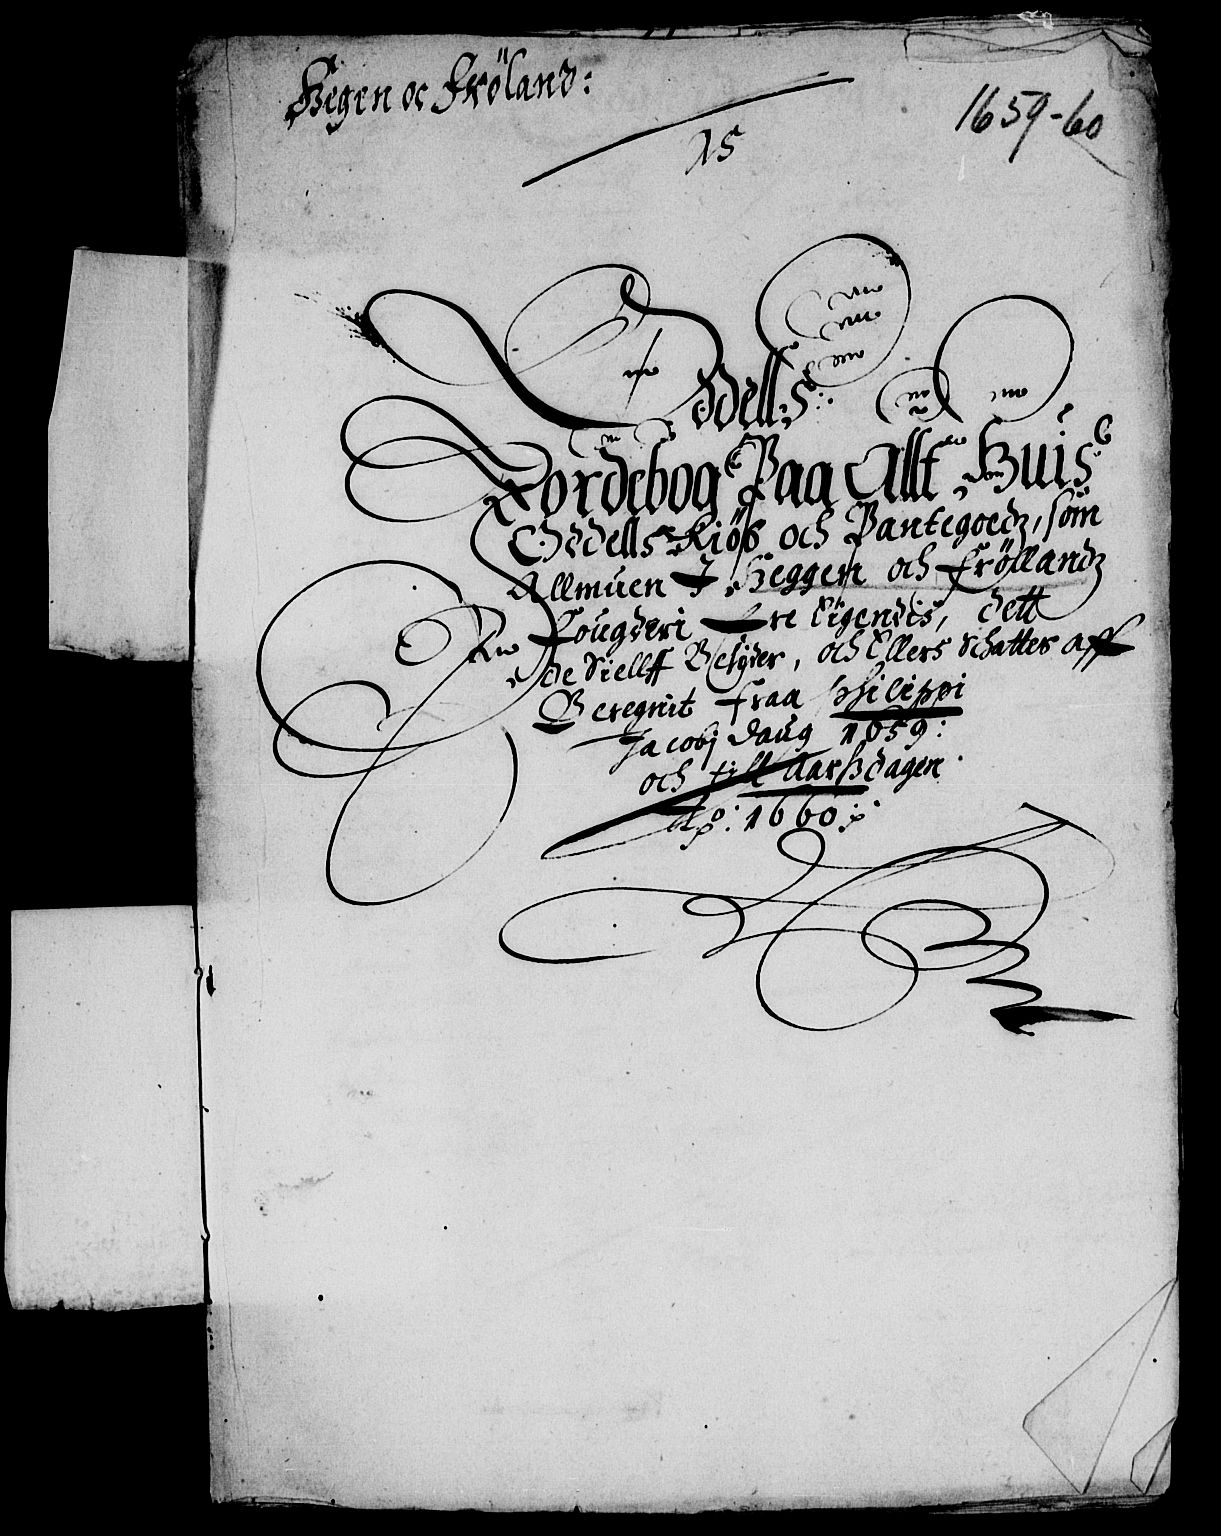 Hegen oc Fröland:
1659-60
15
Odells:
Jordebog Paa Allt Huis
Oddells Kiöb och Pantegoedz, söm
Allmuen I Heggen och Fröllandz
Fougderi Ere Eigendis, dett
de Sielff Besider, och Ellers Schatter aff
Beregnit fraa Philippi
Jacobj daug 1659:
och till Aarszdagen
Ao: 1660: